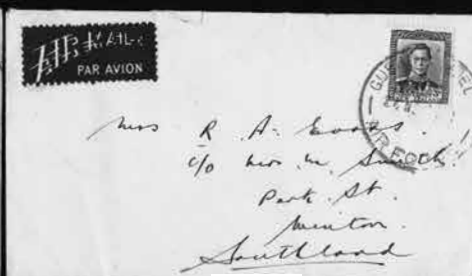 AIR MAIL
PAR AVION
Mrs R. A.
c/o Mrs W. Smith.
Park St.
Winton.
Southland